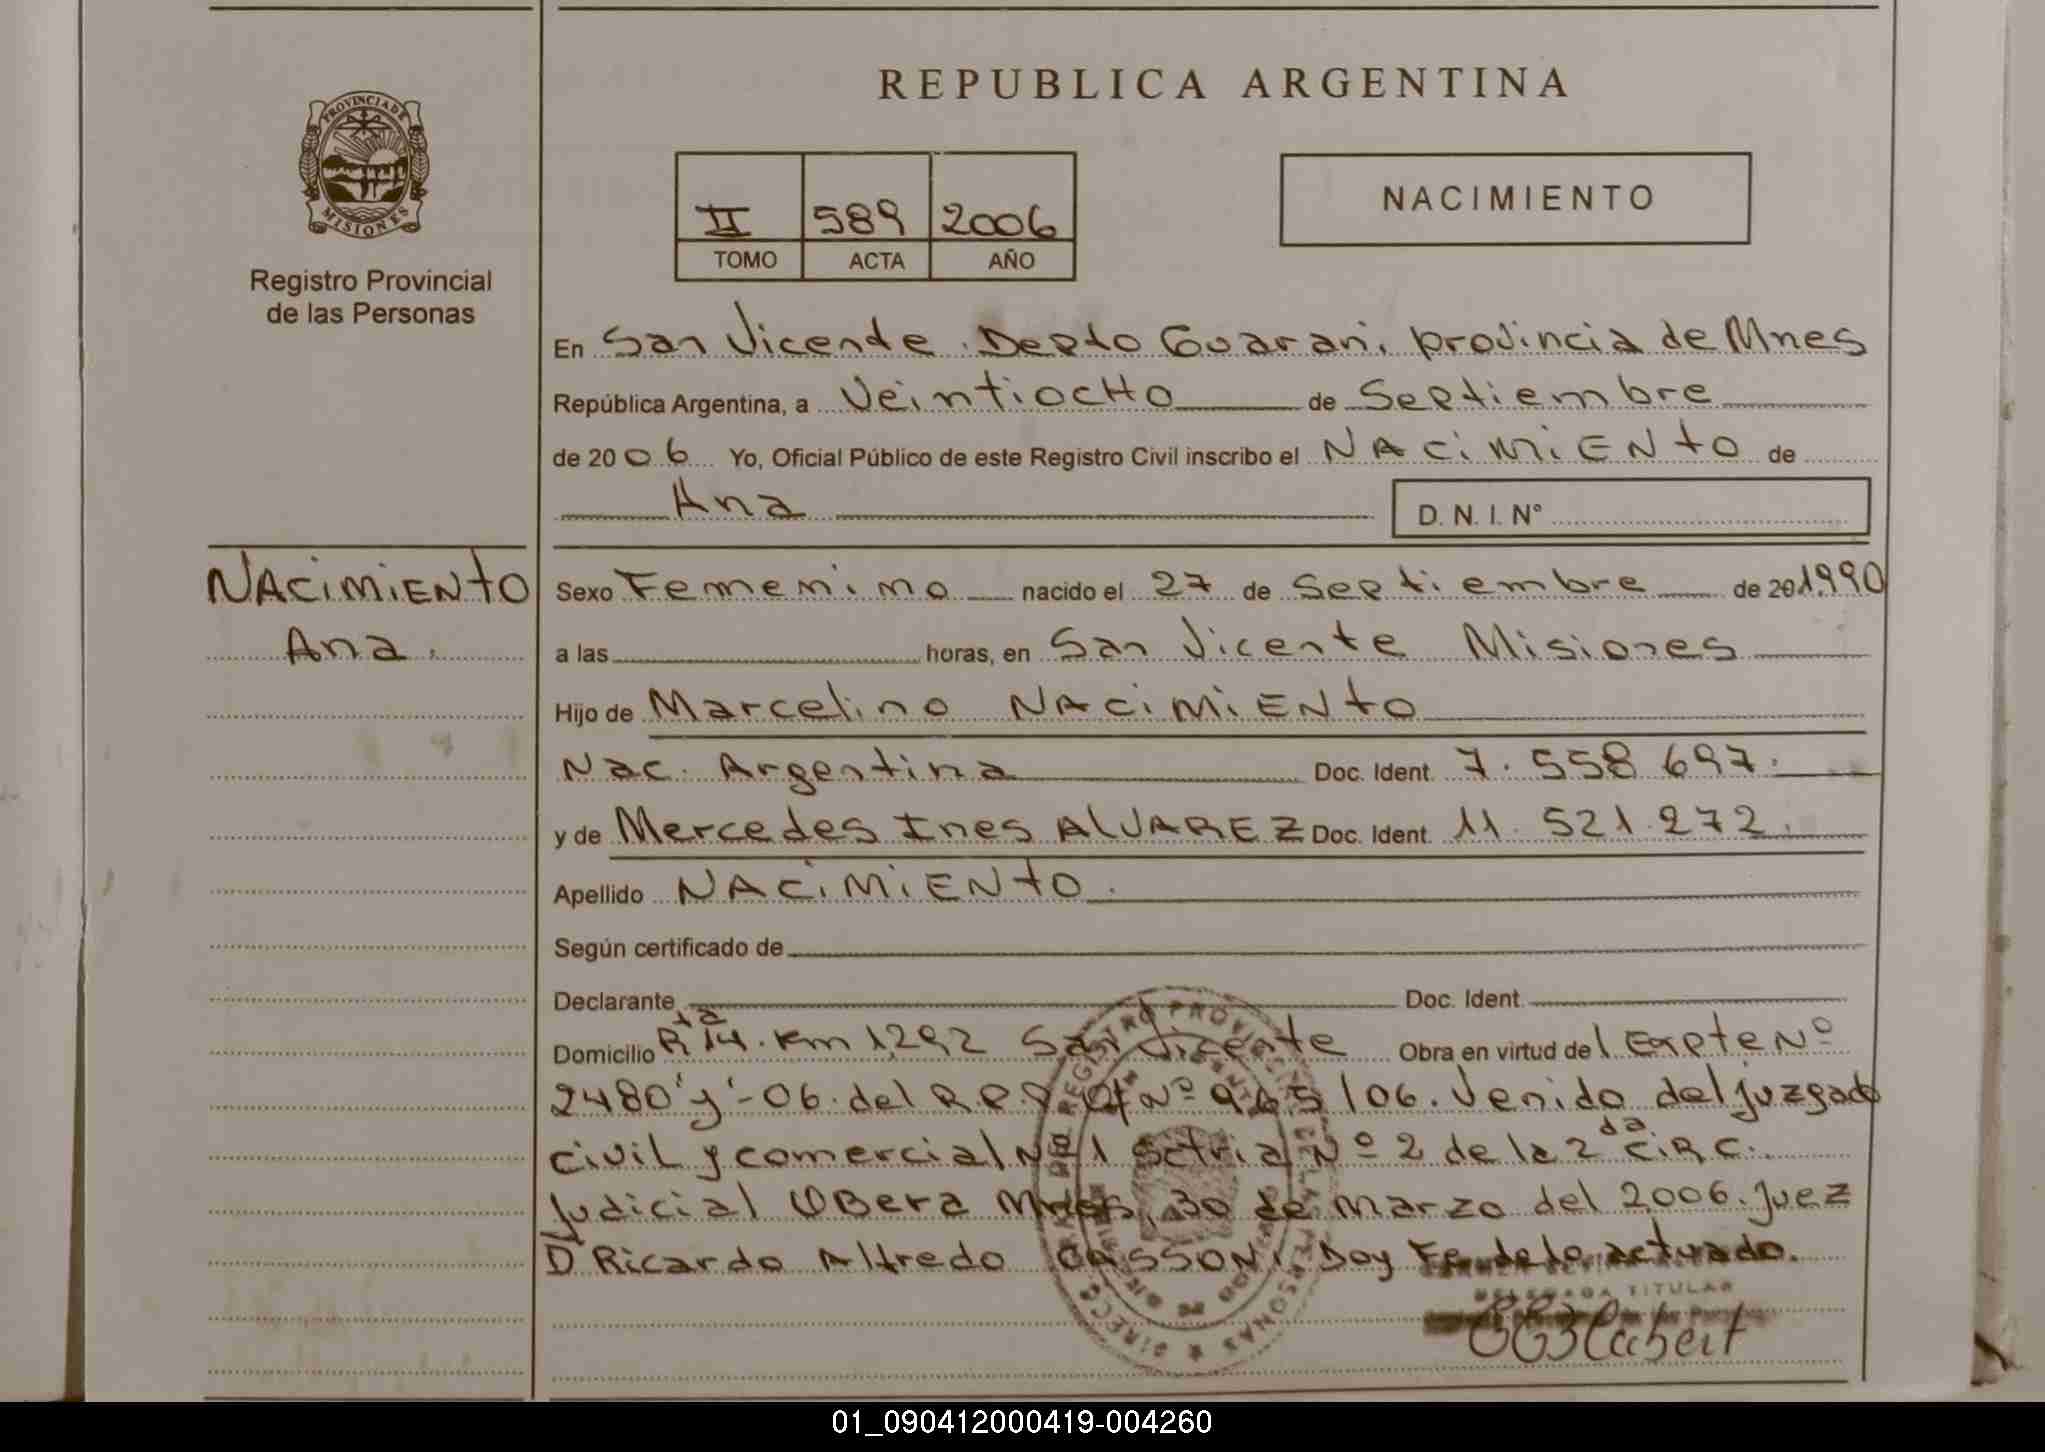 REPUBLICA ARGENTINA
PROVINCIA DE
MISIONES
Registro Provincial
de las Personas
II 589 2006
TOMO ACTA AÑO
NACIMIENTO
En San Vicente Depto Guarani, provincia de Mnes
República Argentina, a Veintiocho de Septiembre
de 2006 Yo, Oficial Público de este Registro Civil inscribo el NACIMIENTO de
Ana
D. N. I. N°
NACIMIENTO
Ana.
Sexo Femenino nacido el 27 de Septiembre de 201990
a las horas, en San Vicente Misiones
Hijo de Marcelino NACIMIENTO
Nac. Argentina Doc. Ident. 7.558.697.
y de Mercedes Ines ALVAREZ Doc. Ident. 11.521.272.
Apellido NACIMIENTO.
Según certificado de
Declarante Doc. Ident.
Domicilio Rta 14. Km 1,292 San Vicente Obra en virtud del Expte Nº
2480'y'-06. del R.P.P. Of Nº 965/06. Venido del juzgado
civil y comercial Nº 1 Sctria Nº 2 de la 2da CIRC.
Judicial OBera Mnes, 30 de Marzo del 2006. Juez
D Ricardo Alfredo CASSONI. Doy Fe de lo actuado.
DELEGADA TITULAR
01_090412000419-004260